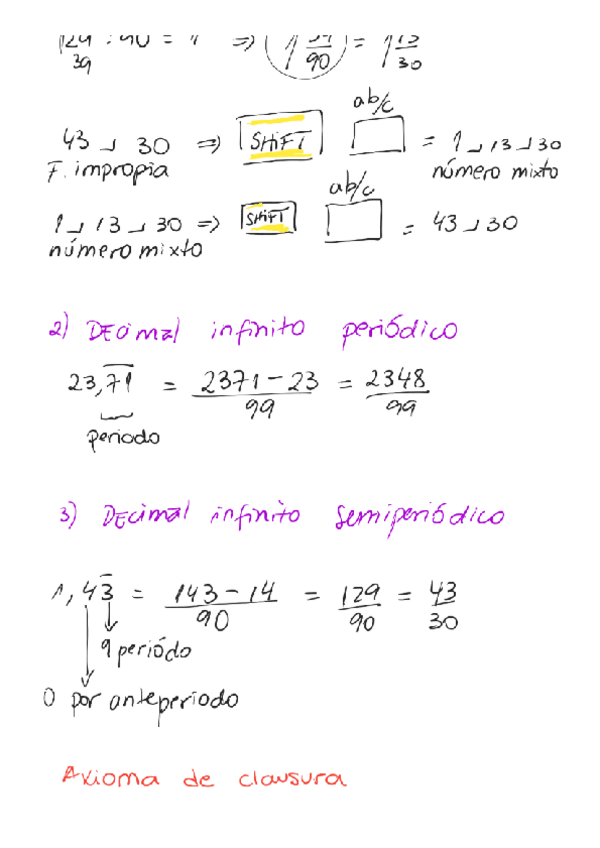 129 : 90 = 1 => 1 39/90 = 1 13/30
39
ab/c
43 ⌟ 30 => SHIFT = 1 ⌟ 13 ⌟ 30
F. impropia número mixto
ab/c
1 ⌟ 13 ⌟ 30 => SHIFT = 43 ⌟ 30
número mixto
2) DEcimal infinito periódico
23,7̅1̅ = 2371 - 23 / 99 = 2348 / 99
periodo
3) DEcimal infinito semiperiódico
1,43̅ = 143 - 14 / 90 = 129 / 90 = 43 / 30
9 periódo
0 por anteperiodo
Axioma de clausura